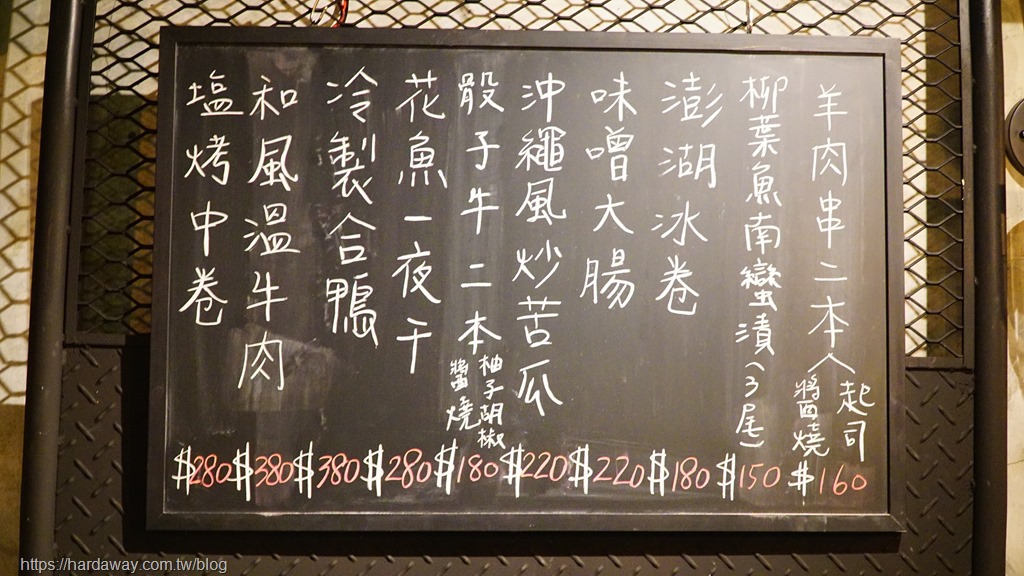 羊肉串二本 起司 醬燒 $160
柳葉魚南蠻漬(3尾) $150
澎湖冰卷 $180
味噌大腸 $220
沖繩風炒苦瓜 $220
骰子牛二本 柚子胡椒 醬燒 $180
花魚一夜干 $280
冷製合鴨 $380
和風溫牛肉 $380
塩烤中卷 $280
https://hardaway.com.tw/blog